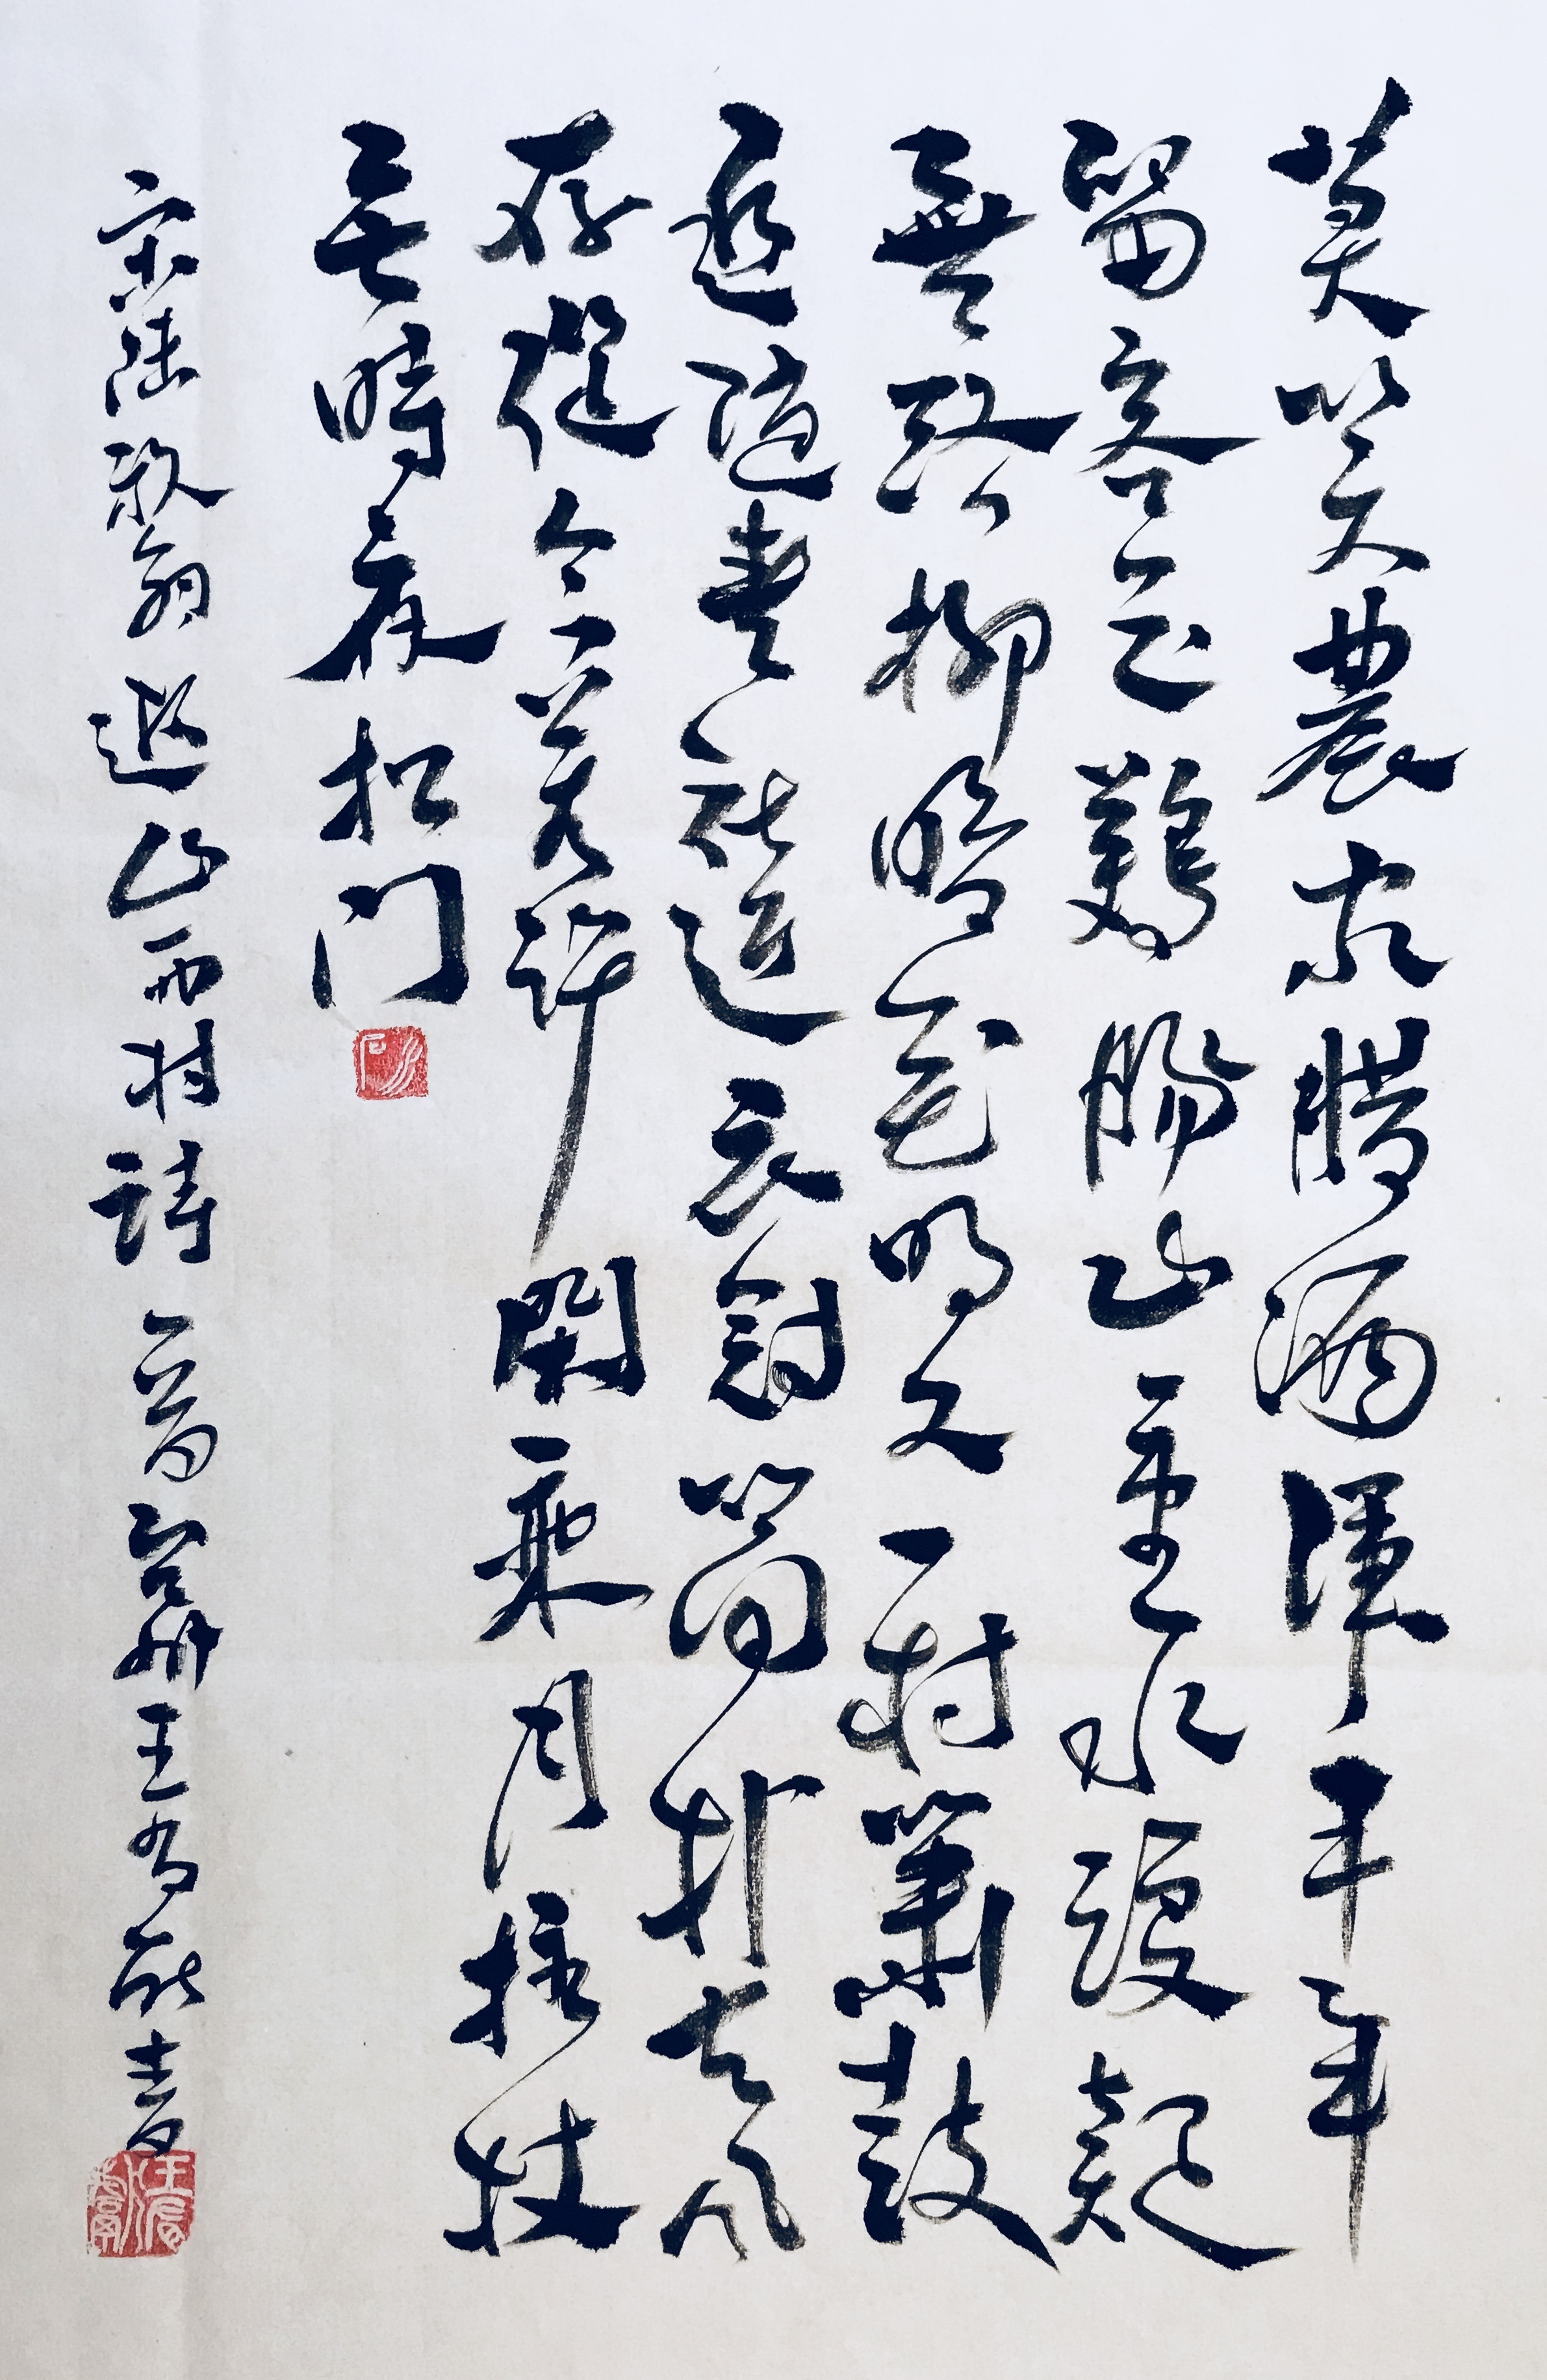 莫笑農家臘酒渾丰年
留客足鷄豚山重水複疑
無路柳暗花明又一村簫鼓
追隨春社近衣冠簡朴古風
存從今若許閑乘月拄杖
無時夜扣門
宋陸放翁遊山西村詩 台州王書